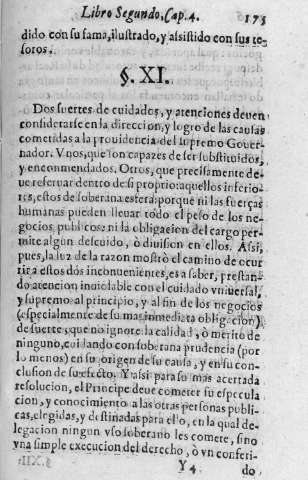 Libro Segundo, Cap. 4. 175
dido con su fama, ilustrado, y assistido con sus te-
soros.
§. XI.
Dos suertes de cuidados, y atenciones deuen
considerarse en la direccion, y logro de las causas
cometidas a la prouidencia del supremo Gouer-
nador. Vnos, que son capazes de ser substituidos,
y encommendados. Otros, que precisamente de-
ue reseruar dentro de si proprio: aquellos inferio-
res, estos de soberana esfera: porque ni las fuerças
humanas pueden lleuar todo el peso de los ne-
gocios publicos: ni la obligacion del cargo per-
mite algun descuido, ò diuision en ellos. Assi,
pues, la luz de la razon mostrò el camino de ocur
rir à estos dos inconuenientes, es a saber, prestan-
do atencion inuiolable con el cuydado vniuersal,
y supremo al principio, y al fin de los negocios
(especialmente de su mas inmediata obligacion)
de suerte, que no ignore la calidad, ò merito de
ninguno, cuidando con soberana prudencia (por
lo menos) en su origen de su causa, y en su con-
clusion de su efecto. Y assi para su mas acertada
resolucion, el Principe deue cometer su especula
cion, y conocimiento a las otras personas publi-
cas, elegidas, y destinadas para ello, en la qual de-
legacion ningun vso soberano les comete, sino
vna simple execucion del derecho, ò vn conferi-
Y 4 do